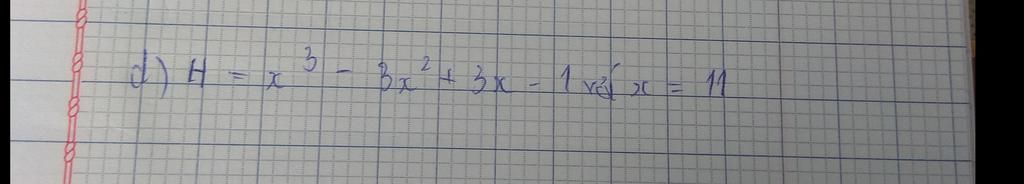 d) H = x³ - 3x² + 3x - 1 với x = 11